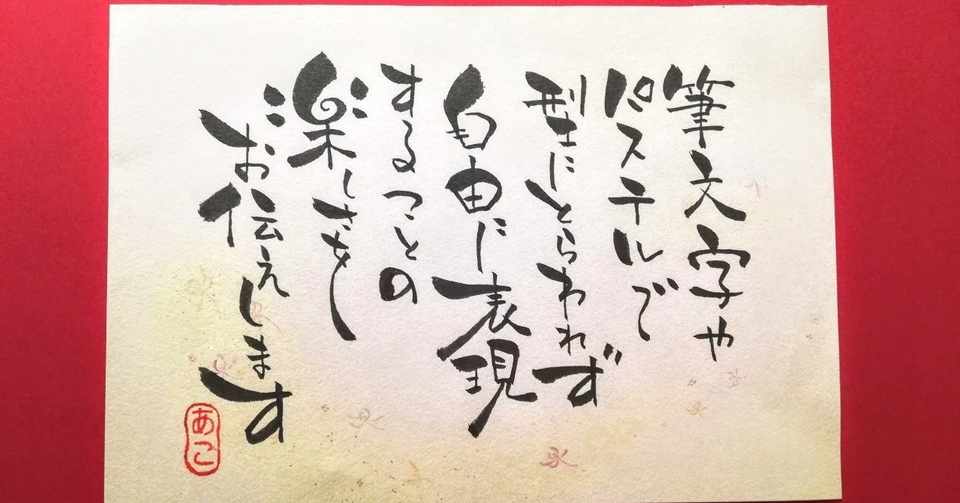 筆文字や
パステルで
型にとらわれず
自由に表現
することの
楽しさを
お伝えします
あこ